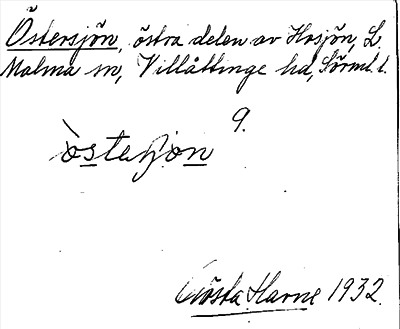 Östersjön, östra delen av Hosjön, L.
Malma sn, Villåttinge hd, Sörml. l.
9.
Gösta Harne 1932.